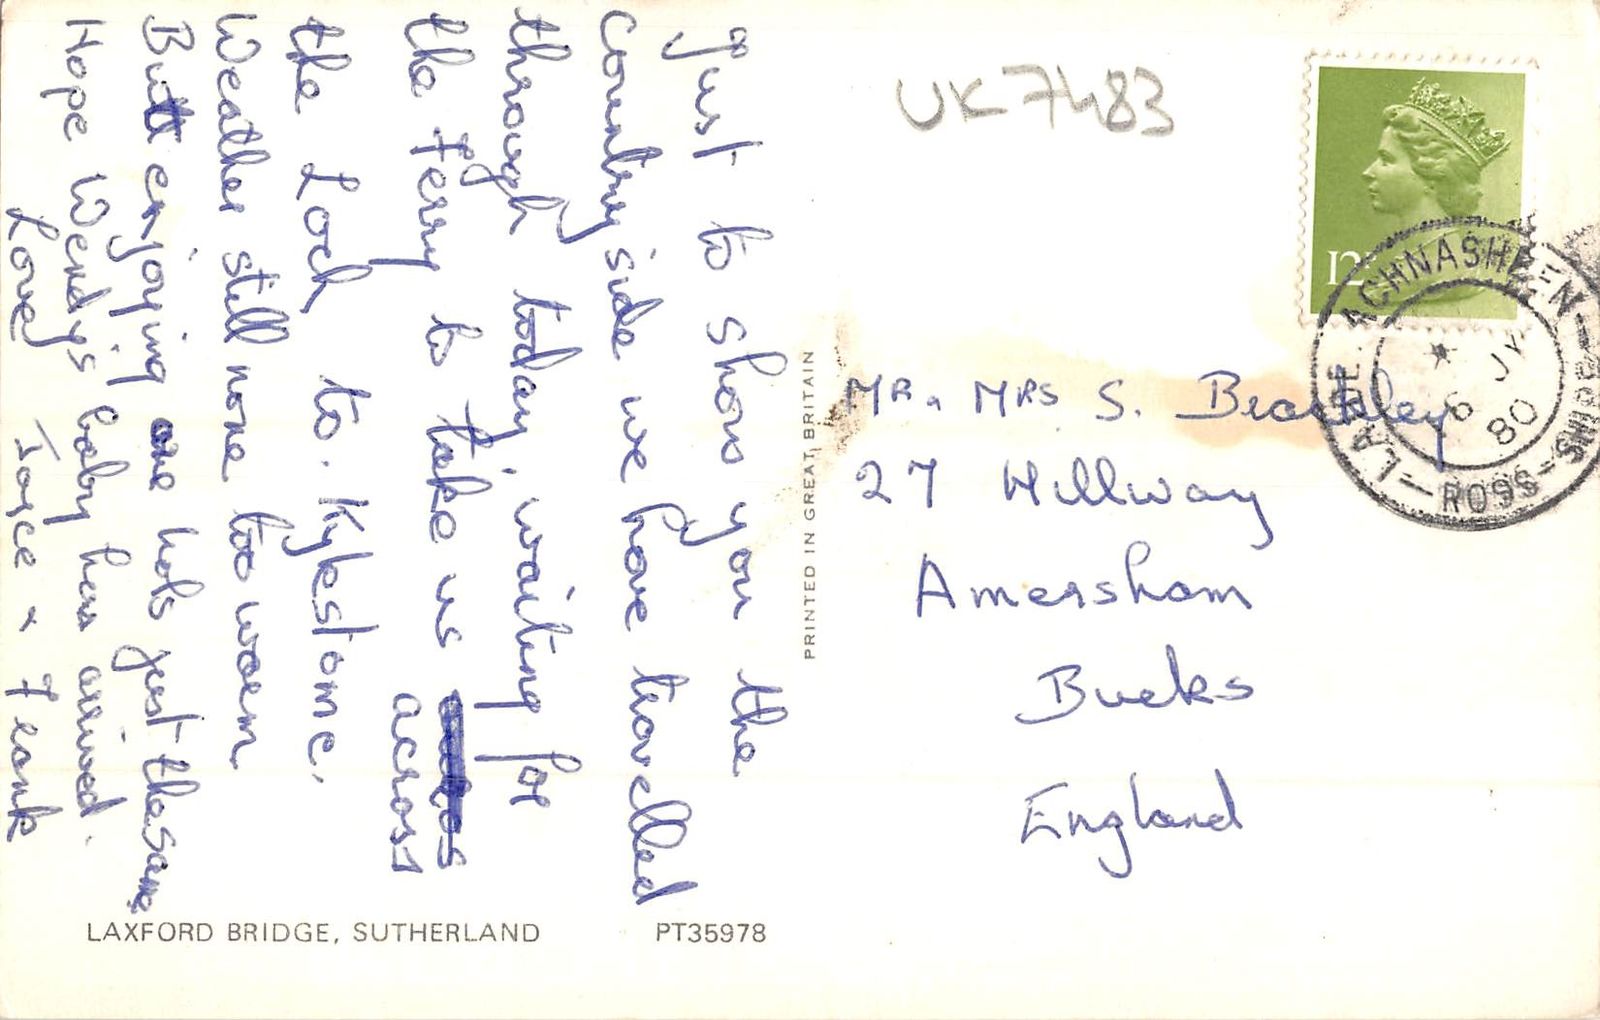 Just to show you the
Country side we have travelled
through today, waiting for
the Ferry to take us
across
the Loch to. Kylestome.
Weather still none too warm
But enjoying our hols just the same
Hope Wendys baby has arrived.
Love Joyce & Frank
LAXFORD BRIDGE, SUTHERLAND
PT35978
PRINTED IN GREAT BRITAIN
UK7483
12
ACHNASHEEN
ROSS-SHIRE
6 JY
80
MR & MRS S. Brackley
27 Hillway
Amersham
Bucks
England